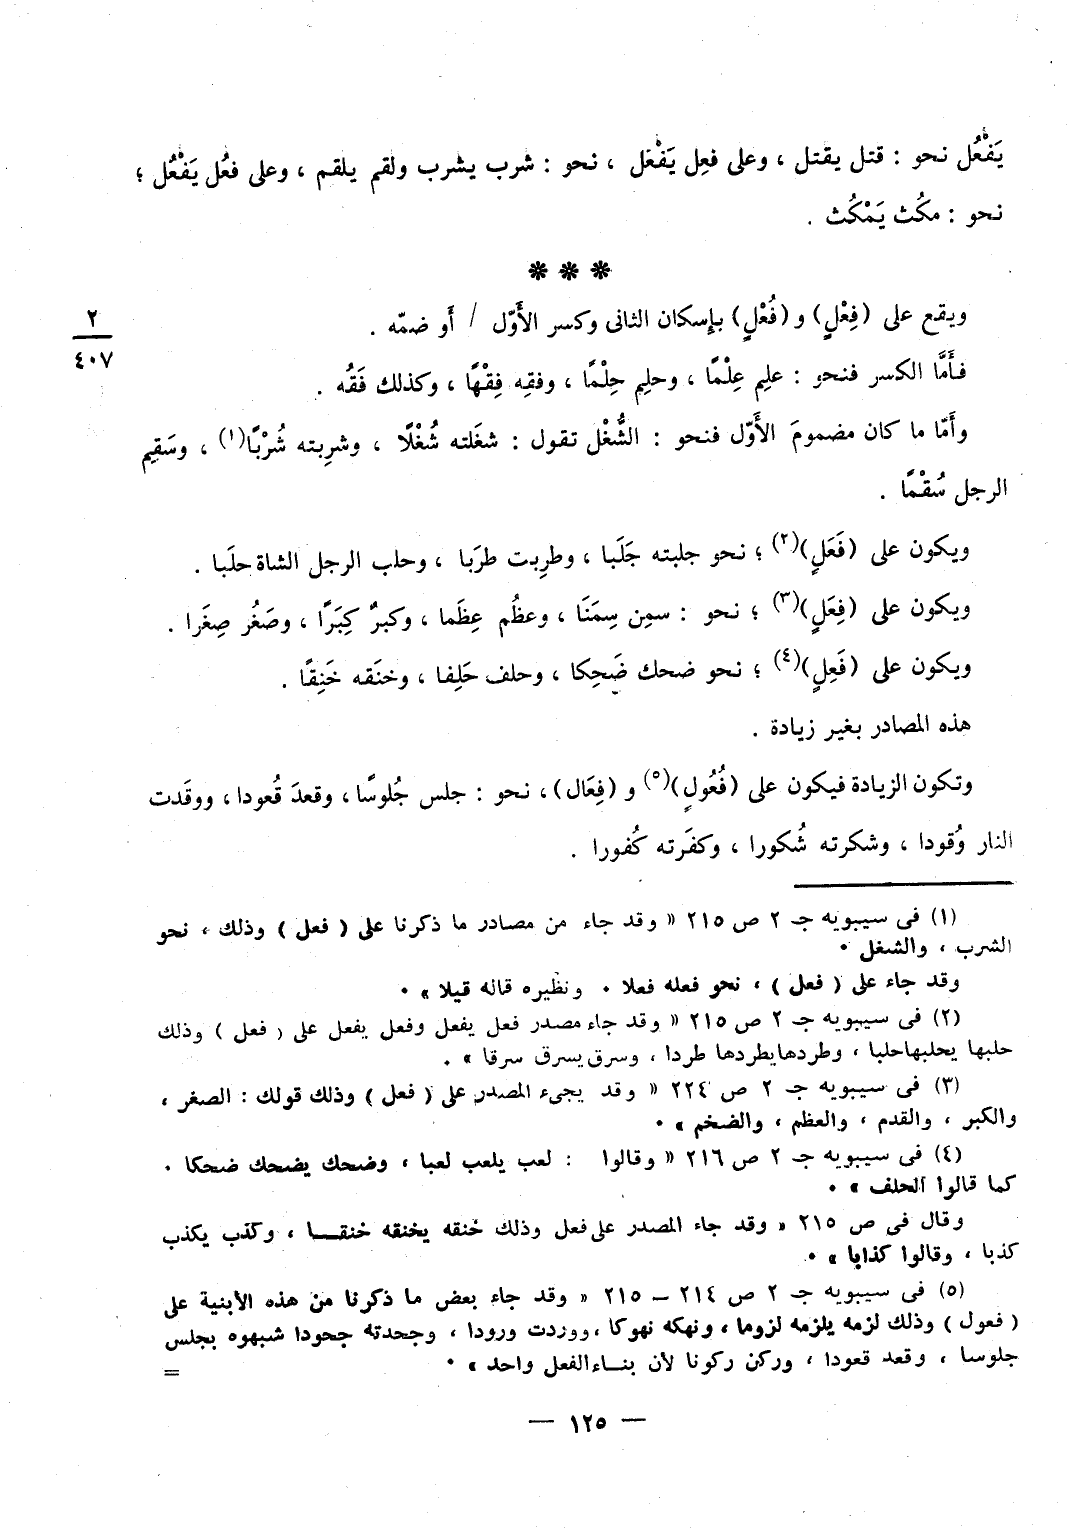 يَفْعُل نحو : قتل يقتل ، وعلى فعِل يَفْعَل ، نحو : شرب يشرب ولقم يلقم ، وعلى فعُل يَفْعُل ؛
نحو : مكُث يَمْكُث .
* * *
ويقع على (فِعْلٍ) و (فُعْلٍ) بإسكان الثانى وكسر الأَوّل / أَو ضمّه .
٢
٤٠٧
فأَمَّا الكسر فنحو : علِم عِلْمًا ، وحلِم حِلْمًا ، وفقِه فِقْهًا ، وكذلك فَقُه .
وأَمّا ما كان مضمومَ الأَوّل فنحو : الشُّغْل تقول : شغَلته شُغْلًا ، وشرِبته شُرْبًا(١) ، وسَقِم
الرجل سُقْمًا .
ويكون على (فَعَلٍ)(٢) ؛ نحو جلبته جَلَبا ، وطرِبت طرَبا ، وحلب الرجل الشاة حلَبا .
ويكون على (فِعَلٍ)(٣) ؛ نحو : سمِن سِمَنًا ، وعظُم عِظَما ، وكبرٌ كِبَرًا ، وصَغُر صِغَرا .
ويكون على (فَعِلٍ)(٤) ؛ نحو ضحك ضَحِكا ، وحلف حَلِفا ، وخنَقه خَنِقًا .
هذه المصادر بغير زيادة .
وتكون الزيادة فيكون على (فُعُولٍ)(٥) و (فِعَال) ، نحو : جلس جُلوسًا ، وقعدَ قُعودا ، ووقَدت
النار وُقودا ، وشكرته شُكورا ، وكفَرته كُفورا .
(١) فى سيبويه جـ ٢ ص ٢١٥ « وقد جاء من مصادر ما ذكرنا على ( فعل ) وذلك ، نحو
الشرب ، والشغل .
وقد جاء على ( فعل ) ، نحو فعله فعلا . ونظيره قاله قيلا » .
(٢) فى سيبويه جـ ٢ ص ٢١٥ « وقد جاء مصدر فعل يفعل وفعل يفعل على ( فعل ) وذلك
حلبها يحلبها حلبا ، وطردها يطردها طردا ، وسرق يسرق سرقا » .
(٣) فى سيبويه جـ ٢ ص ٢٢٤ « وقد يجىء المصدر على ( فعل ) وذلك قولك : الصغر ،
والكبر ، والقدم ، والعظم ، والضخم » .
(٤) فى سيبويه جـ ٢ ص ٢١٦ « وقالوا : لعب يلعب لعبا ، وضحك يضحك ضحكا .
كما قالوا الحلف » .
وقال فى ص ٢١٥ « وقد جاء المصدر على فعل وذلك خنقه يخنقه خنقـــا ، وكذب يكذب
كذبا ، وقالوا كذابا » .
(٥) فى سيبويه جـ ٢ ص ٢١٤ – ٢١٥ « وقد جاء بعض ما ذكرنا من هذه الأبنية على
( فعول ) وذلك لزمه يلزمه لزوما ، ونهكه نهوكا ، ووردت ورودا ، وجحدته جحودا شبهوه بجلس
جلوسا ، وقعد قعودا ، وركن ركونا لأن بنـــاء الفعل واحد » .
=
— ١٢٥ —